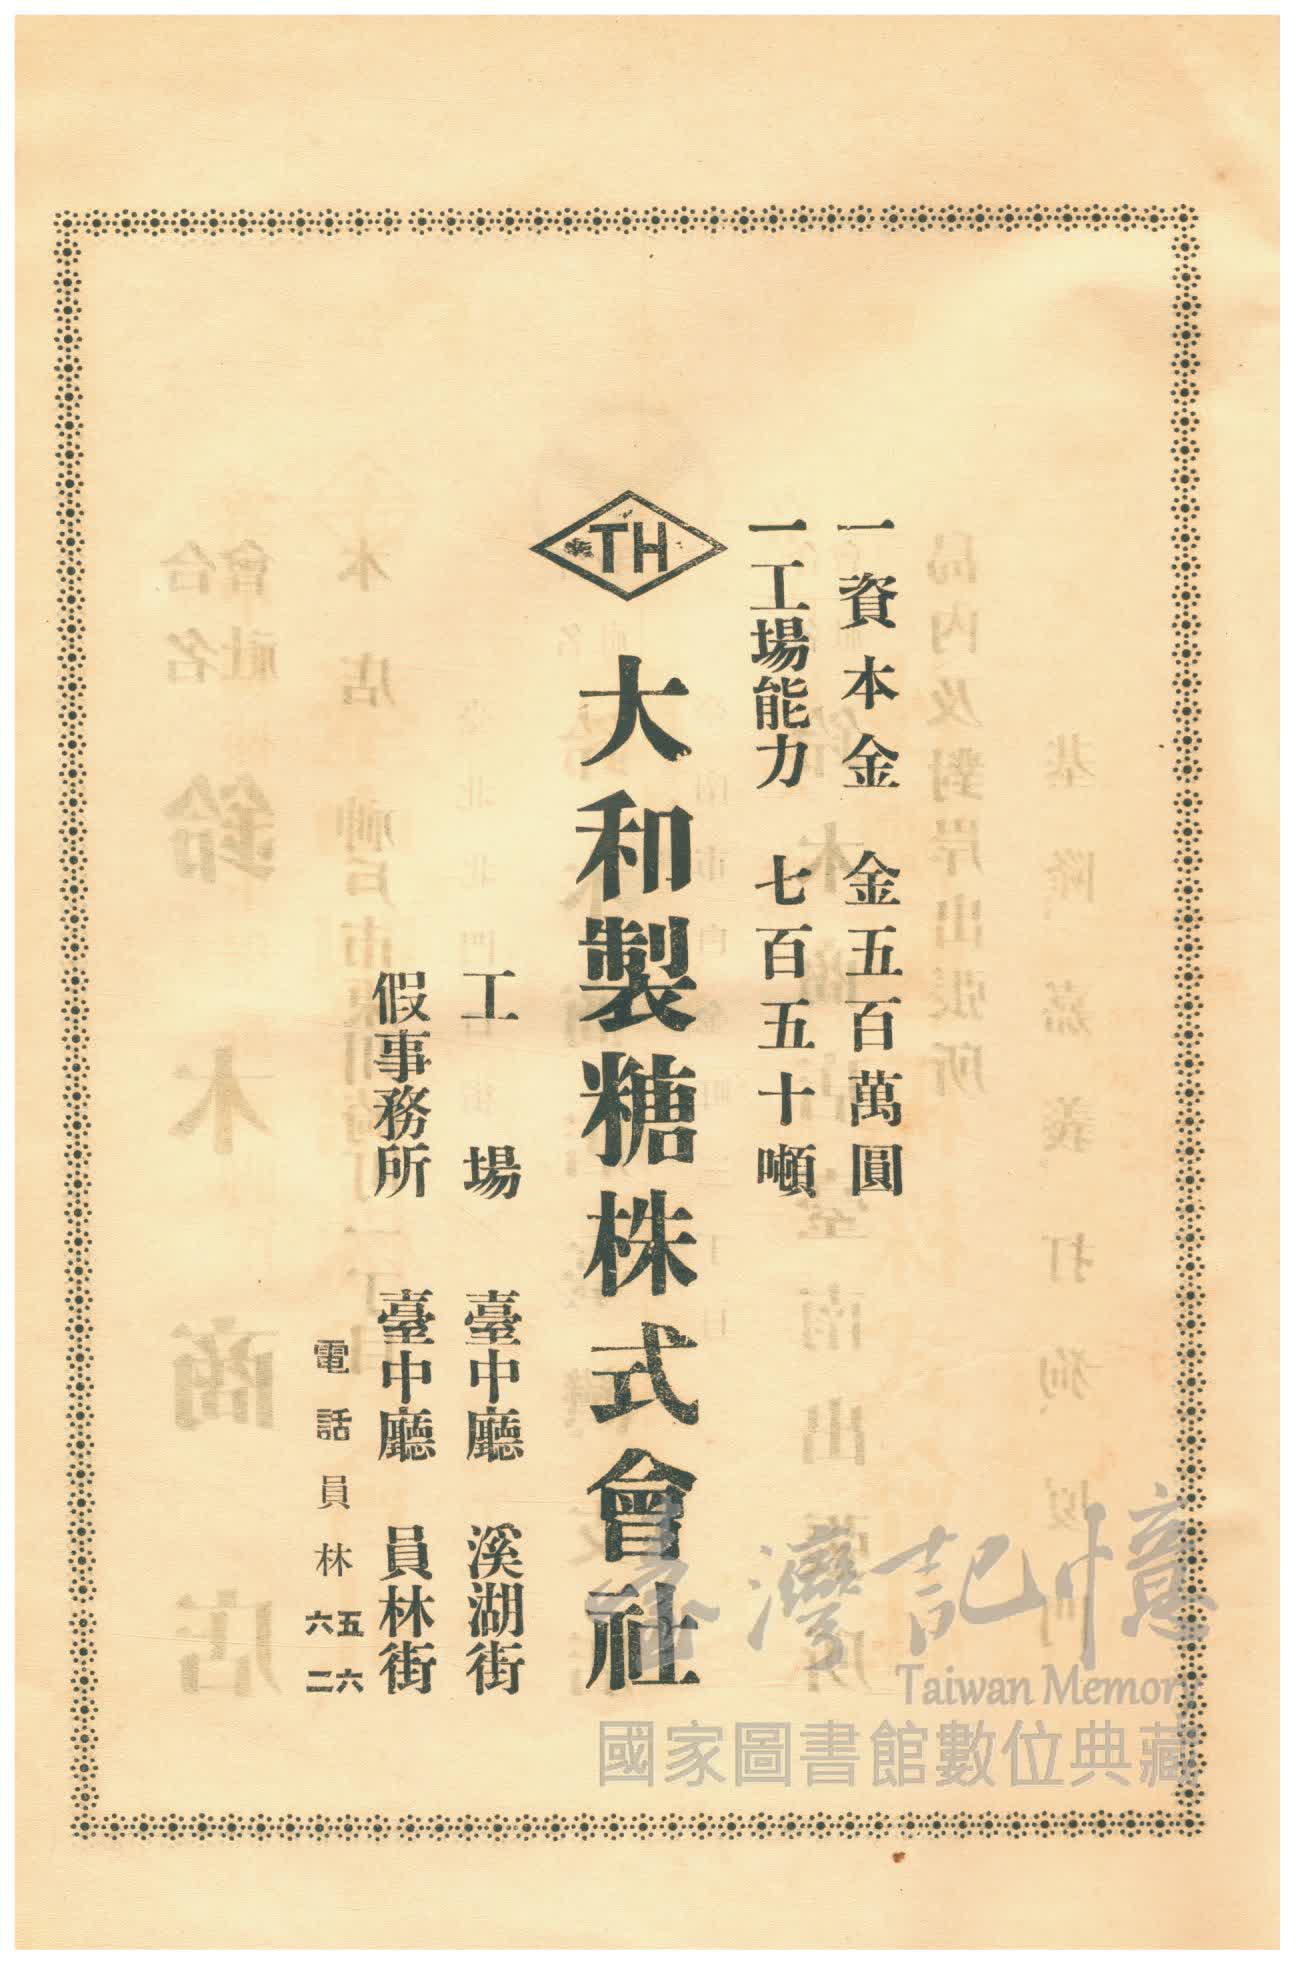 一資本金　金五百萬圓
一工場能力　七百五十噸
TH
大和製糖株式會社
工場　臺中廳　溪湖街
假事務所　臺中廳　員林街
電話員林　五六　六二
臺灣記憶
Taiwan Memory
國家圖書館數位典藏